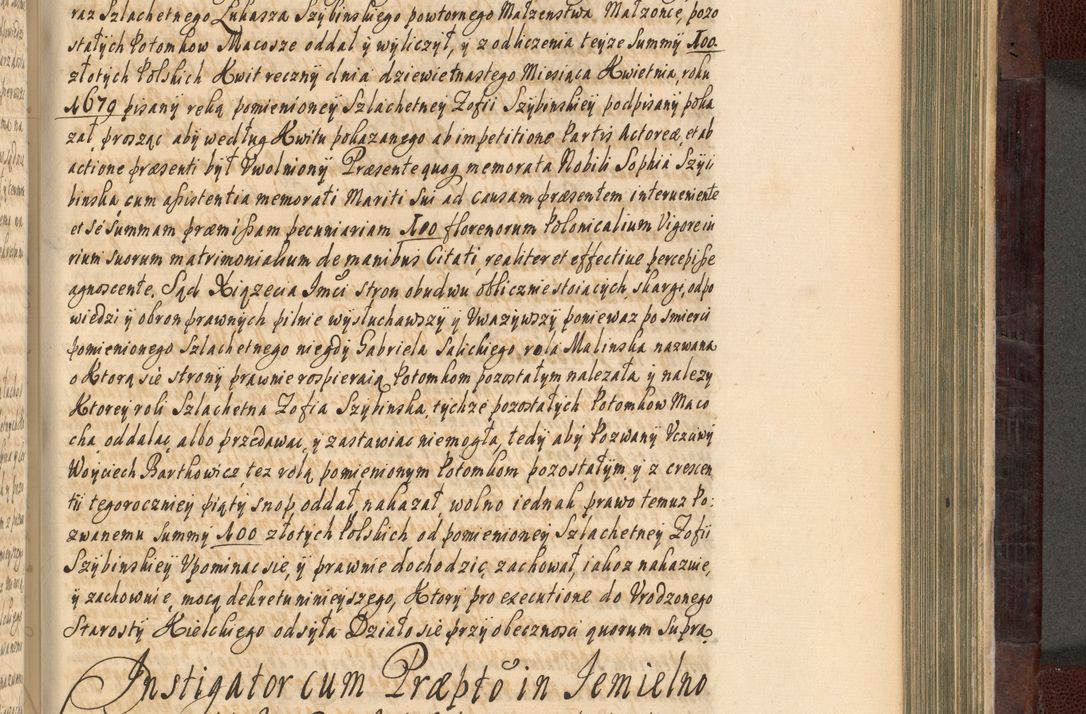 raz Szlachetnego Lukasza Szybinskiego powtornego Małzenstwa Małzonce, pozo
stałych Potomkow Macosze oddał y wyliczył, y z odliczenia teyze Summy 400.
złotych Polskich Kwit reczny dnia dziewietnastego Miesiąca Kwietnia, roku
1679 pisany ręką pomienioney Szlachetney Zofii Szybinskiey podpisany poka
zał, prosząc aby według Kwitu pokazanego ab impetitione Partis Actoreæ, et ab
actione præsenti był Vwolniony Præsente quoq memorata Nobili Sophia Szyi
binska, cum assistentia memorati Mariti sui ad causam præsentem interueniente
et se summam præmissam pecuniariam 400 florenorum Polonicalium Vigore iu
rium suorum matrimonialium de manibus Citati, realiter et effectiue percepisse
agnoscente. Sąd Xiązecia Jmci stron obudwu oblicznie stoiących, skargi, odpo
wiedzi y obron prawnych pilnie wysłuchawszy y Vwazywszy poniewaz po smierci
pomienionego Szlachetnego niegdy Gabriela Salickiego rola Malinska nazwana
o Ktorą sie strony prawnie rospieraią Potomkom pozostałym nalezała y nalezy
Ktorey roli Szlachetna Zofia Szybinska, tychze pozostałych Potomkow Maco
cha oddalac, albo przedawac, y zastawiac niemogła, tedy aby Pozwany Vczciwy
Woyciech Barthowicz, tez rolą pomienionym Potomkom pozostałym, y z crescen
tii tegoroczniey piąty snop oddał, nakazał, wolno iednak prawo temuz Po:
zwanemu summy 400 złotych Polskich od pomienioney Szlachetney Zofii
Szybinskiey Vpominac sie, y prawnie dochodzic, zachował, iakoz nakazuie,
y zachowuie, mocą dekretu ninieyszego, Ktory pro executione do Vrodzonego
Starosty Kielckiego odsyła Działo sie przy obecznosci quorum supra
Instigator cum Præpto in Jemielno